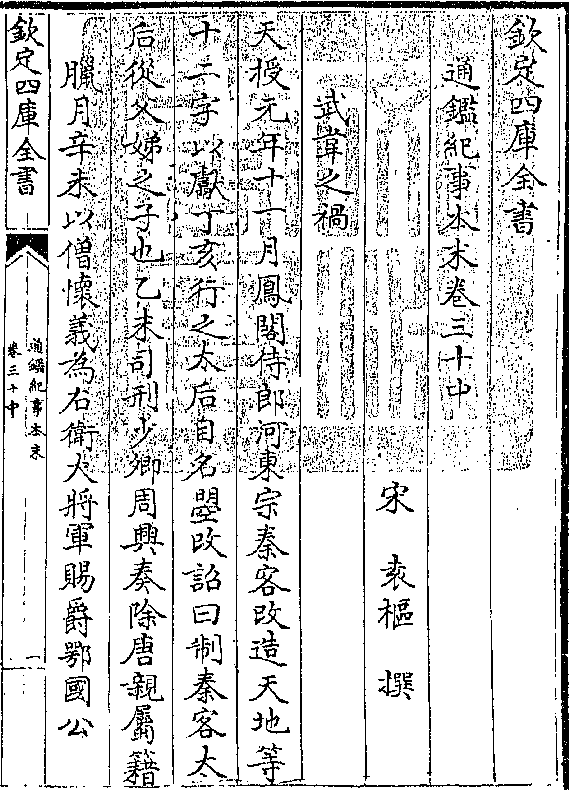 欽定四庫全書
通鑑紀事本末卷三十中
宋 袁樞 撰
武韋之禍
天授元年十一月鳳閣侍郎河東宗秦客改造天地等
十二字以獻丁亥行之太后自名曌改詔曰制秦客太
后從父姊之子也乙未司刑少卿周興奏除唐親屬籍
臘月辛未以僧懷義為右衛大將軍賜爵鄂國公
欽定四庫全書
通鑑紀事本末
卷三十中
一